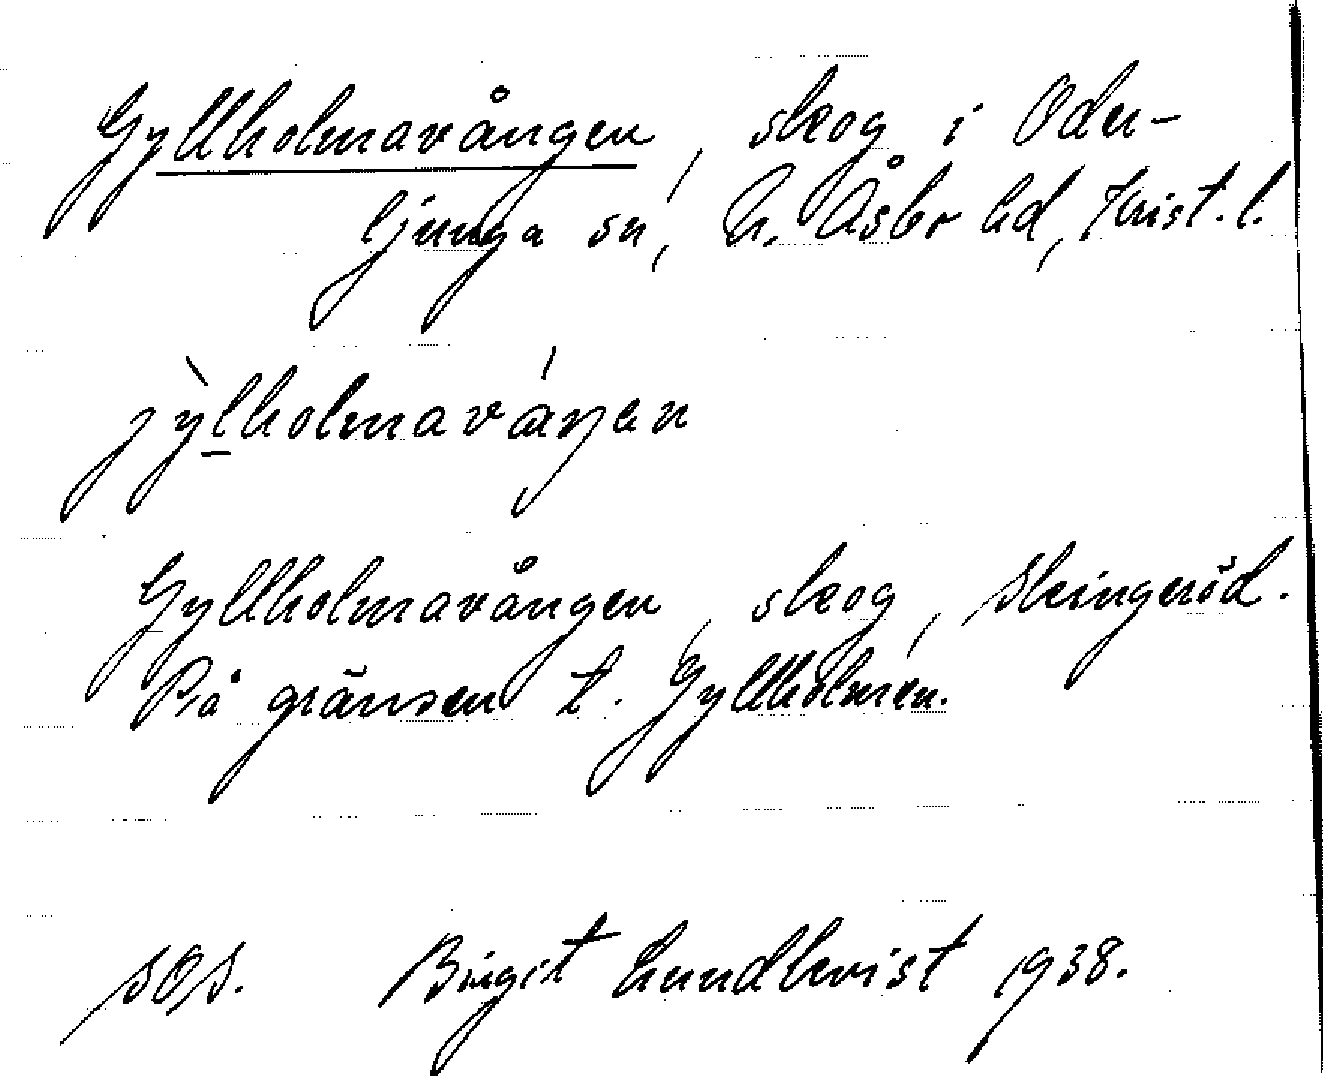 Gyllholmavången, skog i Oder-
ljunga sn, N. Åsbo hd, Krist. l.
jỳlholmaváŋen
Gyllholmavången, skog, Skingeröd.
På gränsen t. Gyllholmen.
SOS. Birgit Lundkvist 1938.